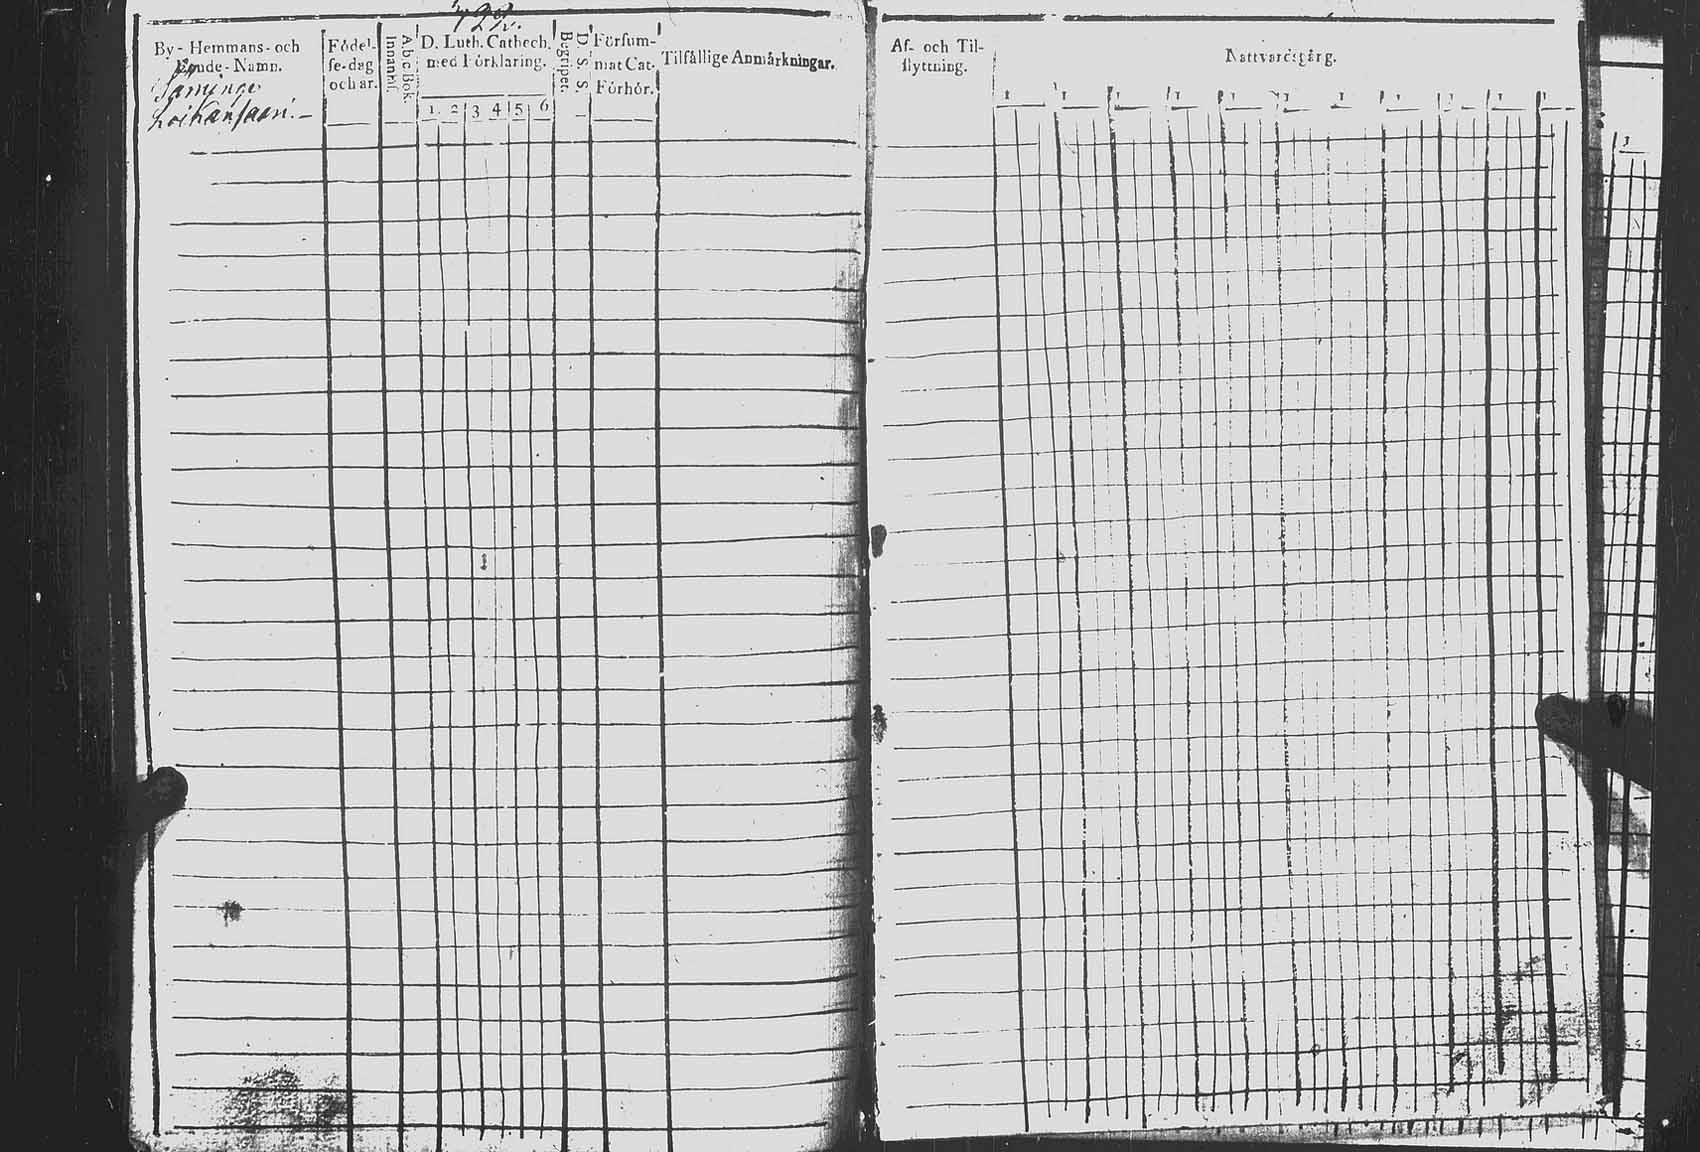 722.
By- Hemmans- och
Bonde- Namn.
Säminge
Loikansaari.
Födel-
se-dag
och år.
A b c Bok.
Innantil.
D. Luth. Cathech.
med Förklaring.
1. 2 3 4 5 6
D. S. S.
Begriper.
Försum-
mat Cat-
Förhör.
Tilfällige Anmärkningar.
Af- och Til-
flyttning.
Nattvardsgång.
1 1 1 1 1 1 1 1 1 1 1